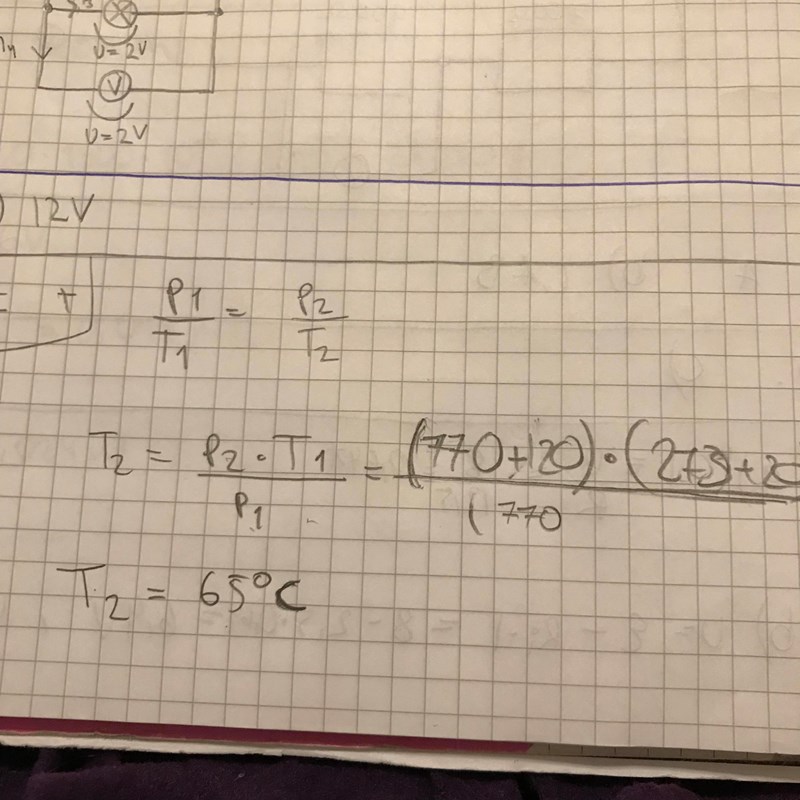 U=2V
V
U=2V
) 12V
= +
P1/T1 = P2/T2
T2 = P2·T1/P1 = (770+120)·(273+20/(770
T2 = 65°C